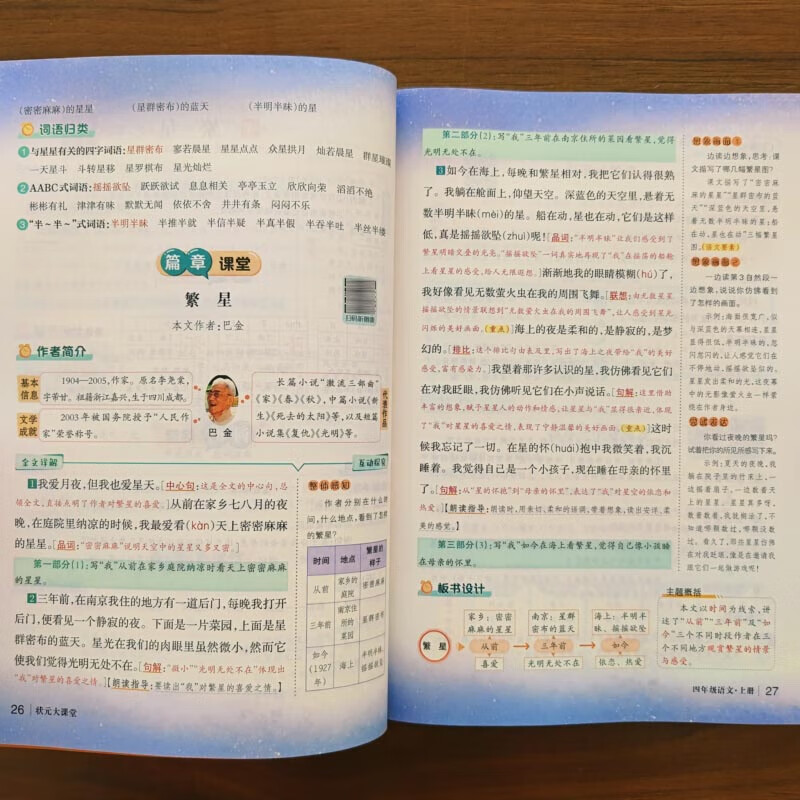 (密密麻麻)的星星 (星群密布)的蓝天 (半明半昧)的星
词语归类
1与星星有关的四字词语:星群密布 寥若晨星 星星点点 众星拱月 灿若晨星
一天星斗 斗转星移 星罗棋布 星光灿烂
2AABC式词语:摇摇欲坠 跃跃欲试 息息相关 亭亭玉立 欣欣向荣 滔滔不绝
彬彬有礼 津津有味 默默无闻 依依不舍 井井有条 闷闷不乐
3“半~半~”式词语:半明半昧 半推半就 半信半疑 半真半假 半吞半吐 半丝半缕
篇章课堂
繁星
本文作者:巴金
扫码听朗读
作者简介
基本信息
1904—2005,作家。原名李尧棠,
字芾甘。祖籍浙江嘉兴,生于四川成都。
文学成就
2003年被国务院授予“人民作
家”荣誉称号。
巴金
长篇小说“激流三部曲”
《家》《春》《秋》,中篇小说《新
生》《死去的太阳》等,以及短篇
小说集《复仇》《光明》等。
代表作品
全文详解
互动探究
1我爱月夜,但我也爱星天。[中心句:这是全文的中心句,总
领全文,直接点明了作者对繁星的喜爱。]从前在家乡七八月的夜
晚,在庭院里纳凉的时候,我最爱看(kàn)天上密密麻麻
的星星。[品词:“密密麻麻”说明天空中的星星又多又密。]
第一部分(1):写“我”从前在家乡庭院纳凉时看天上密密麻麻
的星星。
2三年前,在南京我住的地方有一道后门,每晚我打开
后门,便看见一个静寂的夜。下面是一片菜园,上面是星
群密布的蓝天。星光在我们的肉眼里虽然微小,然而它
使我们觉得光明无处不在。[句解:“微小”“光明无处不在”体现出
“我”对繁星的喜爱之情。][朗读指导:要读出“我”对繁星的喜爱之情。]
整体感知
作者分别在什么时
间,什么地点,看到了怎样
的繁星?
时间 地点 繁星的样子
从前 家乡的庭院 密密麻麻
三年前 南京住所的菜园 星群密布
如今(1927年) 海上 半明半昧、摇摇欲坠
26 状元大课堂
第二部分(2):写“我”三年前在南京住所的菜园看繁星,觉得
光明无处不在。
3如今在海上,每晚和繁星相对,我把它们认得很熟
了。我躺在舱面上,仰望天空。深蓝色的天空里,悬着无
数半明半昧(mèi)的星。船在动,星也在动,它们是这样
低,真是摇摇欲坠(zhuì)呢![品词:“半明半昧”让我们感受到了
繁星明暗交叠的光亮。“摇摇欲坠”一词真实地再现了“我”在摇荡的船舱
上看星星的感受,给人无限遐想。]渐渐地我的眼睛模糊(hú)了,
我好像看见无数萤火虫在我的周围飞舞。[联想:由无数星星
摇摇欲坠的情景联想到“无数萤火虫在我的周围飞舞”,让人感受到星光
闪烁的美好画面。(重点)]海上的夜是柔和的,是静寂的,是梦
幻的。[排比:这个排比句由表及里,写出了海上之夜带给“我”的美好
感受,富有感染力。]我望着那许多认识的星,我仿佛看见它们
在对我眨眼,我仿佛听见它们在小声说话。[句解:这里借助
丰富的想象,赋予星星人的动作和情感,让星星与“我”显得很亲近,体现
了“我”对星星的喜爱之情,表现了宁静温馨的美好画面。(重点)]这时
候我忘记了一切。在星的怀(huái)抱中我微笑着,我沉
睡着。我觉得自己是一个小孩子,现在睡在母亲的怀里
了。[句解:从“星的怀抱”到“母亲的怀里”,表达了“我”对星空的依恋和
热爱。][朗读指导:朗读时,用亲切、柔和的语调,带着想象,读出安详、柔
美的感觉。]
第三部分(3):写“我”如今在海上看繁星,觉得自己像小孩睡
在母亲的怀里。
板书设计
繁星
家乡:密密麻麻的星星
从前
喜爱
南京:星群密布的蓝天
三年前
光明无处不在
海上:半明半昧、摇摇欲坠
如今
依恋、热爱
想象画面1
边读边想象,思考:课
文描写了哪几幅繁星图?
课文描写了“密密麻
麻的星星”“星群密布的蓝
天”“深蓝色的天空里,悬
着无数半明半昧的星;船
在动,星也在动”三幅繁星
图。(语文要素)
想象画面2
一边读第3自然段一
边想象,说说你仿佛看到
了怎样的画面。
尝试表达
你看过夜晚的繁星吗?
试着把你的所见所感写下来。
主题概括
本文以时间为线索,讲
述了“从前”“三年前”及“如
今”三个不同时段作者在三
个不同地方观赏繁星的情景
与感受。
四年级语文·上册 27